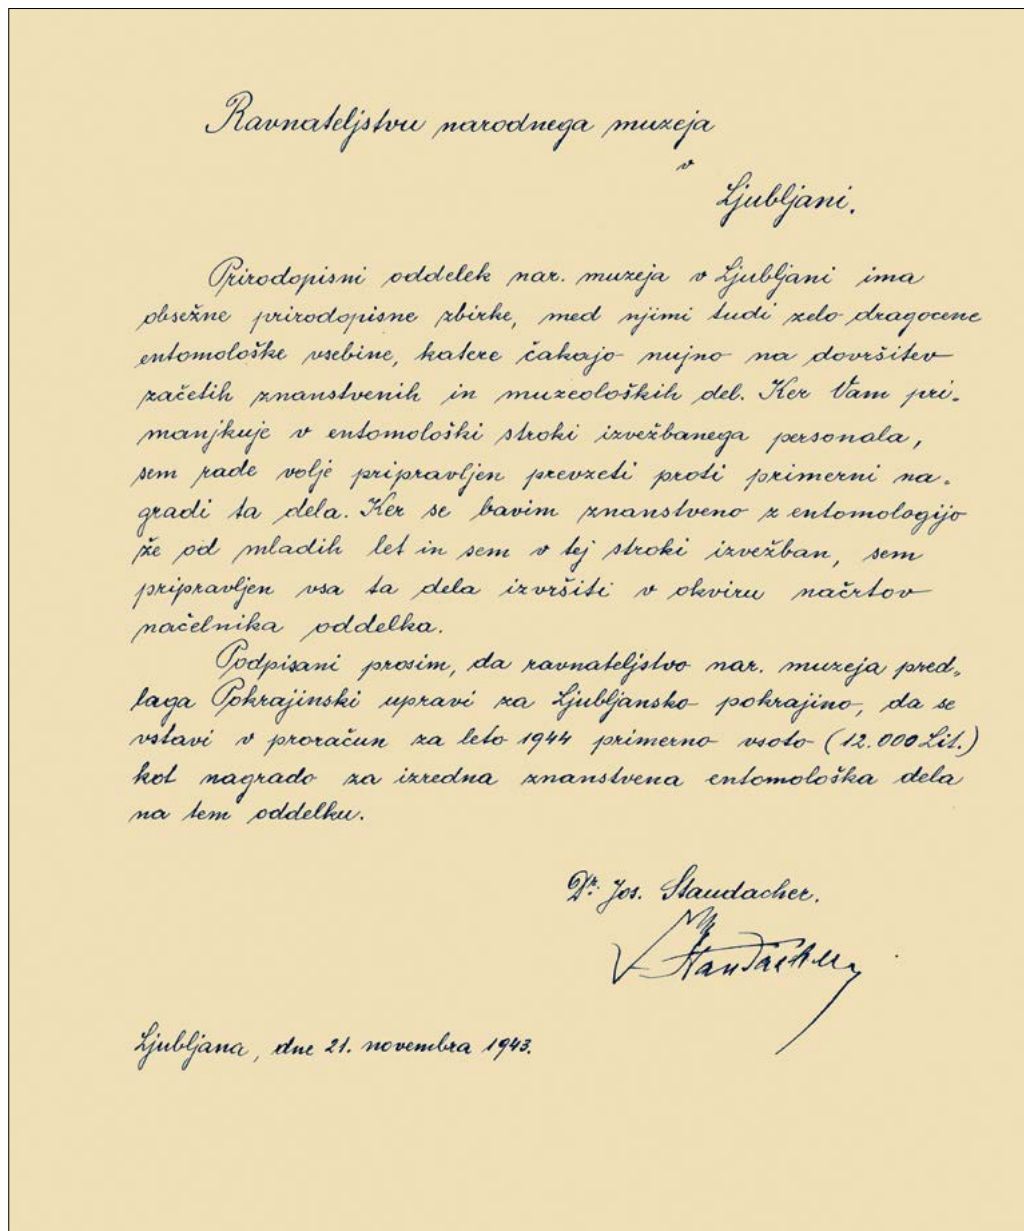 Ravnateljstvu narodnega muzeja
v
Ljubljani.
Prirodopisni oddelek nar. muzeja v Ljubljani ima
obsežne prirodopisne zbirke, med njimi tudi zelo dragocene
entomološke vsebine, katere čakajo nujno na dovršitev
začetih znanstvenih in muzeoloških del. Ker Vam pri-
manjkuje v entomološki stroki izvežbanega personala,
sem rade volje pripravljen prevzeti proti primerni na-
gradi ta dela. Ker se bavim znanstveno z entomologijo
že od mladih let in sem v tej stroki izvežban, sem
pripravljen vsa ta dela izvršiti v okviru načrtov
načelnika oddelka.
Podpisani prosim, da ravnateljstvo nar. muzeja pred-
laga Pokrajinski upravi za Ljubljansko pokrajino, da se
vstavi v proračun za leto 1944 primerno vsoto (12.000 Lit.)
kot nagrado za izredna znanstvena entomološka dela
na tem oddelku.
Dr. Jos. Staudacher.
Staudacher
Ljubljana, dne 21. novembra 1943.